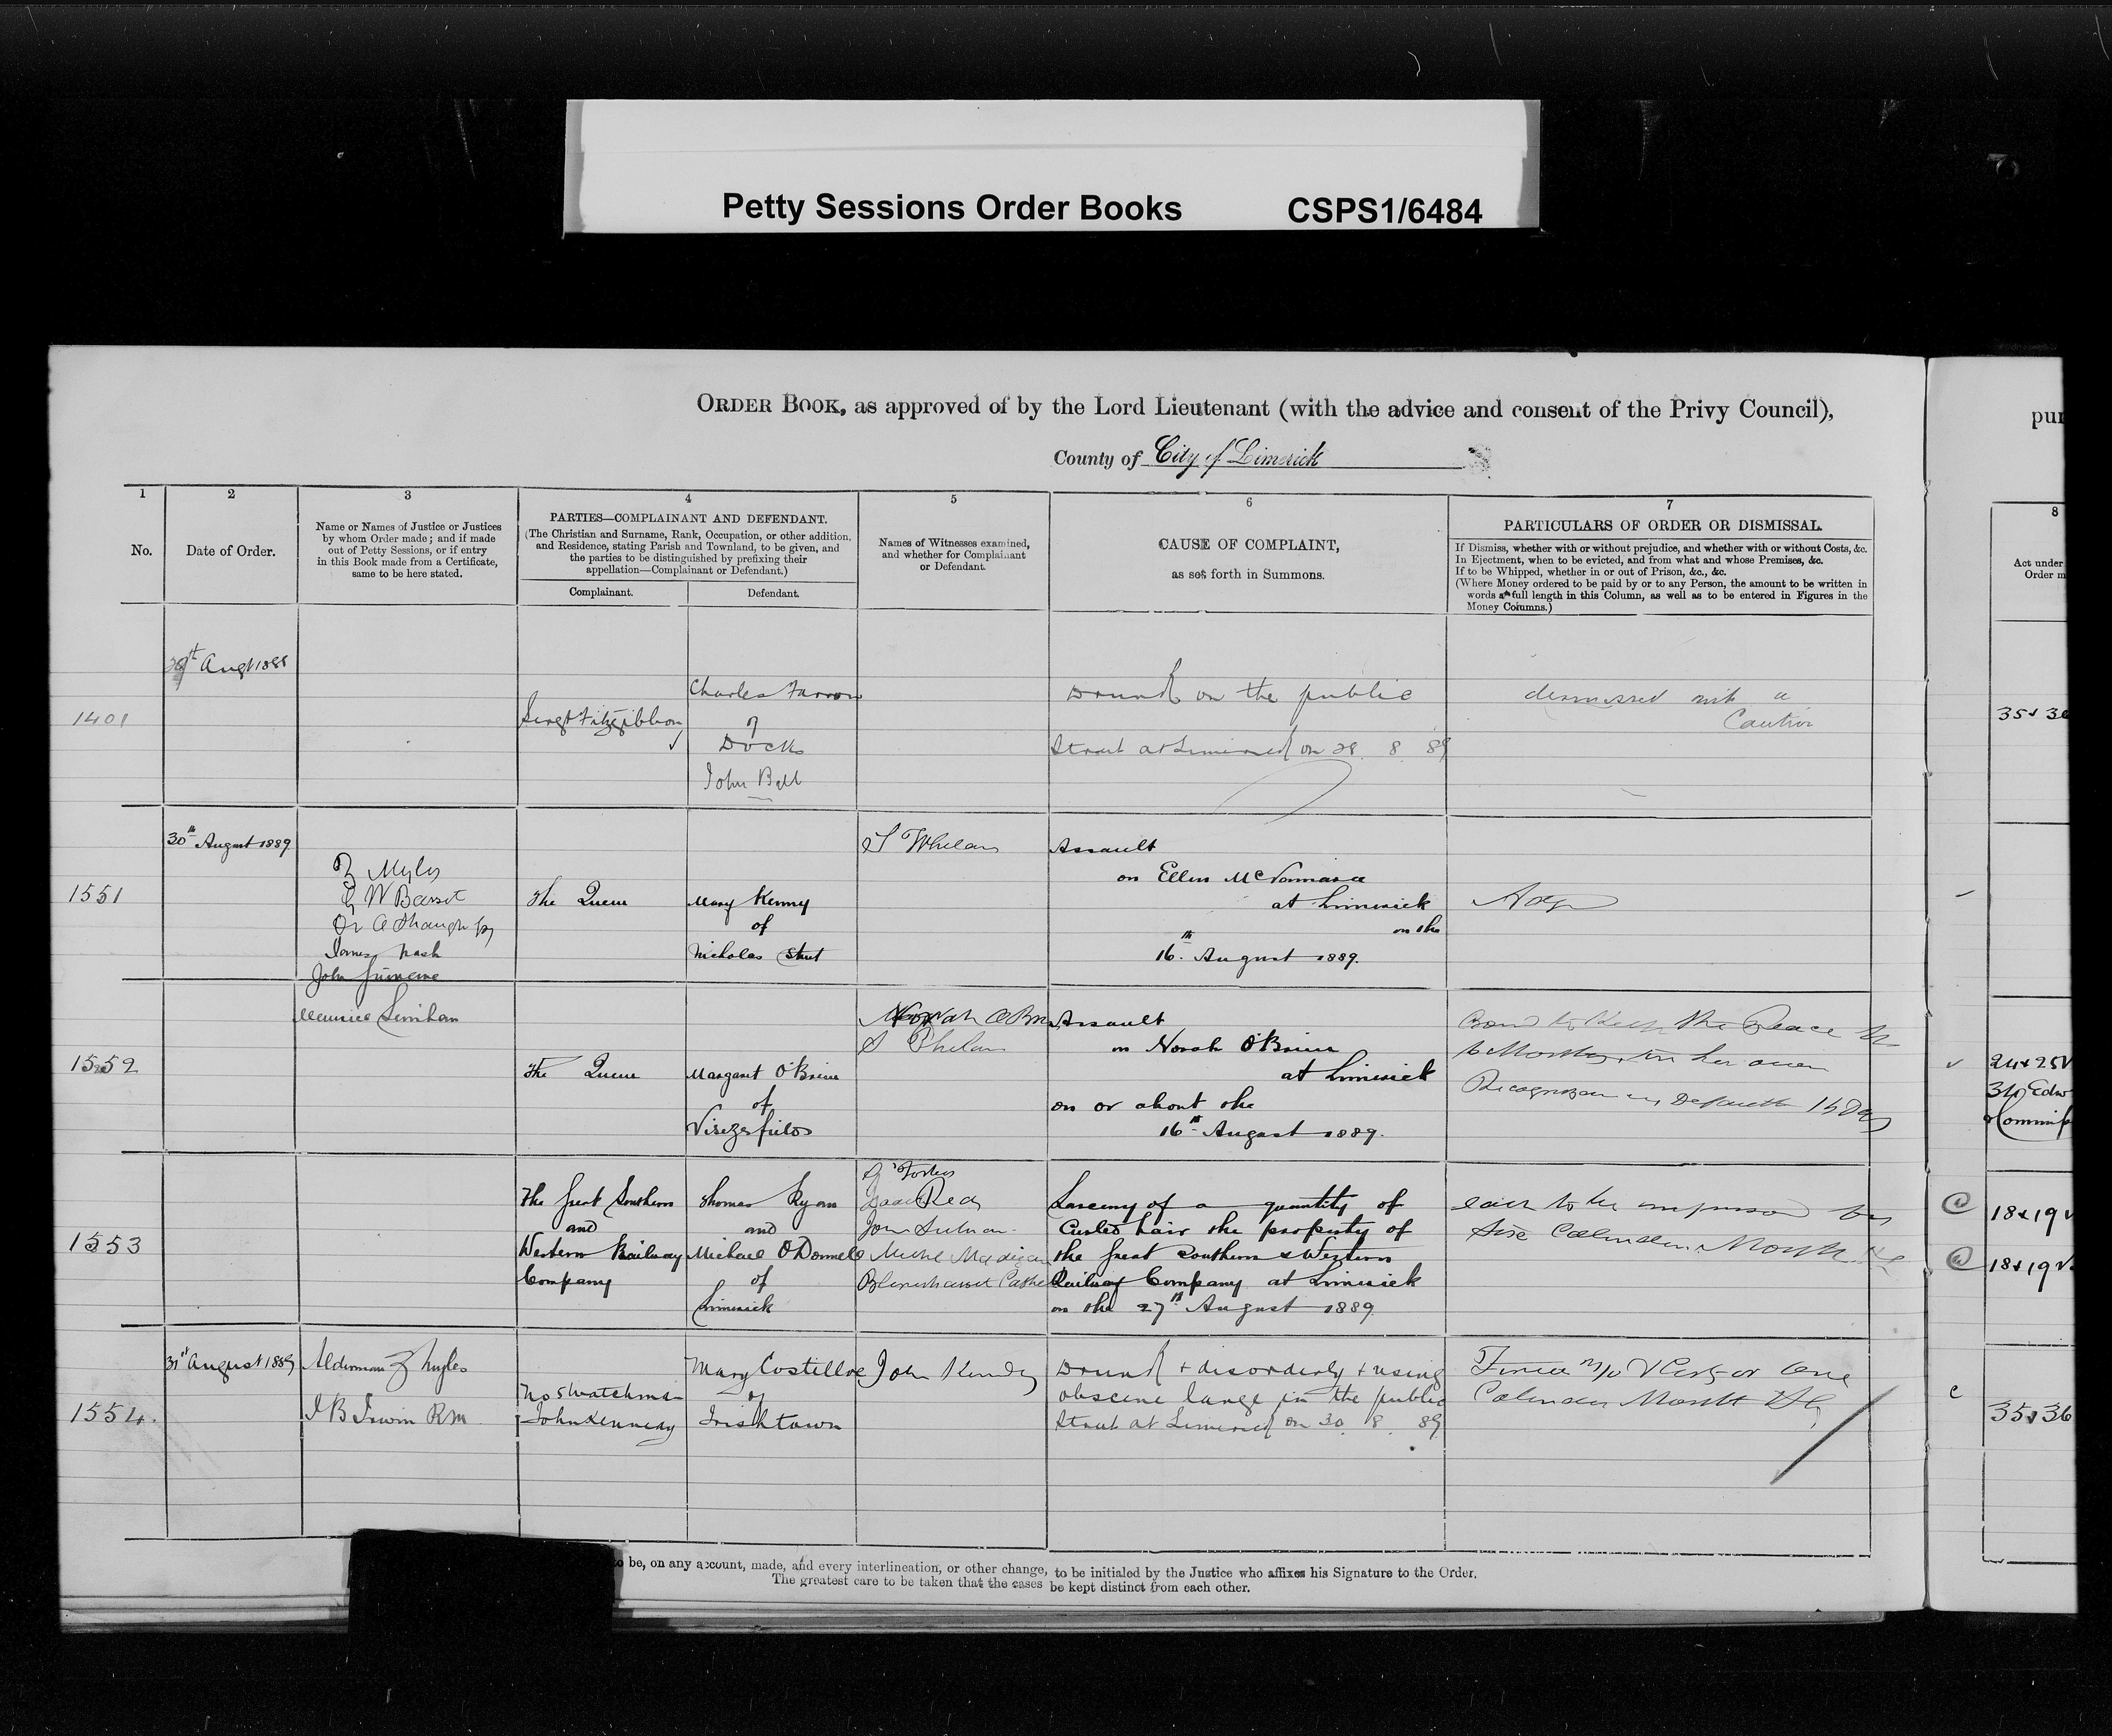 Petty Sessions Order Books CSPS1/6484
ORDER BOOK, as approved of by the Lord Lieutenant (with the advice and consent of the Privy Council),
pur
County of City of Limerick
1 2 3 4 5 6 7 8
No.
Date of Order.
Name or Names of Justice or Justices
by whom Order made; and if made
out of Petty Sessions, or if entry
in this Book made from a Certificate,
same to be here stated.
PARTIES—COMPLAINANT AND DEFENDANT.
(The Christian and Surname, Rank, Occupation, or other addition,
and Residence, stating Parish and Townland, to be given, and
the parties to be distinguished by prefixing their
appellation—Complainant or Defendant.)
Complainant.
Defendant.
Names of Witnesses examined,
and whether for Complainant
or Defendant.
CAUSE OF COMPLAINT,
as set forth in Summons.
PARTICULARS OF ORDER OR DISMISSAL.
If Dismiss, whether with or without prejudice, and whether with or without Costs, &c.
In Ejectment, when to be evicted, and from what and whose Premises, &c.
If to be Whipped, whether in or out of Prison, &c., &c.
(Where Money ordered to be paid by or to any Person, the amount to be written in
words at full length in this Column, as well as to be entered in Figures in the
Money Columns.)
Act under
Order m
1401
Augt
Sergt Fitzgibbon
Charles
of
Docks
John Bell
Drunk on the public
Street at Limerick on 28 8 89
dismissed with a
Caution
35 & 36
1551
30th August 1889
Myles
W Basset
James Nash
John
The Queen
Mary Kenny
of
Nicholas Street
Whelan
Assault
on Ellen McNamara
at Limerick
on the
16th August 1889.
1552
Maurice Lenihan
The Queen
Margaret O'Brien
of
Norah O'Brien
S Phelan
Assault
on Norah O'Brien
at Limerick
on or about the
16th August 1889.
Bound to Keep the Peace
6 Months in her own
Recognizance Default 14 Days
24 & 25 V
34 Edw
Commis
1553
The Great Southern
and
Western Railway
Company
Thomas Ryan
and
Michael O'Donnell
of
Limerick
Isaac Rea
John
Michl Madigan
Blennerhasset
Larceny of a quantity of
Curled hair the property of
the Great Southern & Western
Railway Company at Limerick
on the 27th August 1889.
each to be imprisoned for
Calendar Month
18 & 19 V
18 & 19 V
1554.
31st August 1889
Alderman Myles
I B Irwin RM
No 5 Watchman
John Kennedy
Mary Costelloe
of
Irishtown
John Kennedy
Drunk & disorderly & using
obscene lange in the public
Street at Limerick on 30 8 89
Fined or One
Calendar Month
35 & 36
to be, on any account, made, and every interlineation, or other change, to be initialed by the Justice who affixes his Signature to the Order.
The greatest care to be taken that the cases be kept distinct from each other.